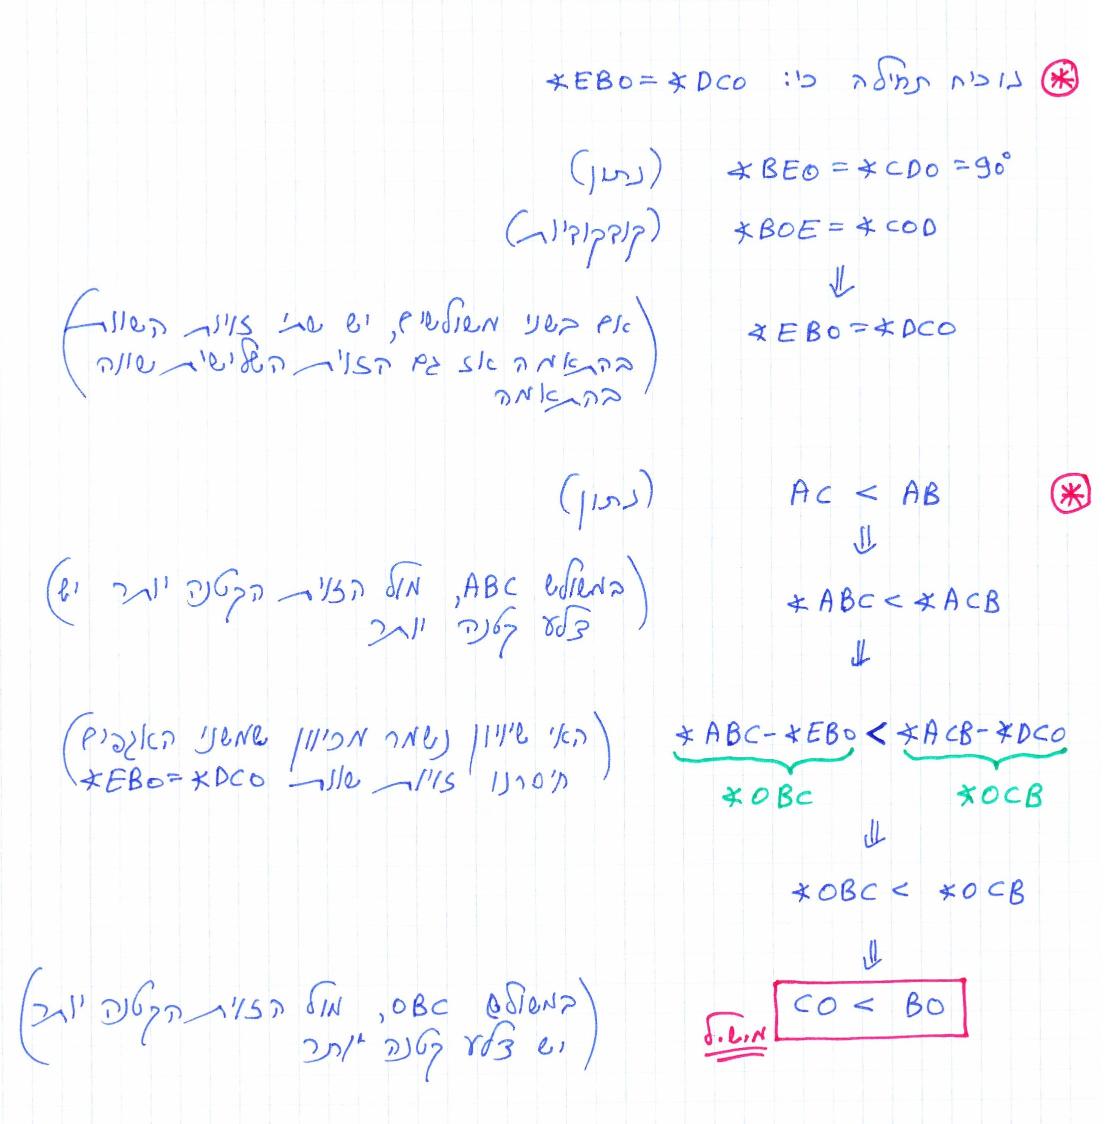 ⊛ נוכיח תחילה כי: ∢EBO = ∢DCO
∢BEO = ∢CDO = 90° (נתון)
∢BOE = ∢COD (קודקודיות)
⇓
∢EBO = ∢DCO (אם בשני משולשים, יש שתי זוויות השוות
בהתאמה אז גם הזוית השלישית שווה
בהתאמה)
⊛ AC < AB (נתון)
⇓
∢ABC < ∢ACB (במשולש ABC, מול הזוית הקטנה יותר יש
צלע קטנה יותר)
⇓
∢ABC - ∢EBO < ∢ACB - ∢DCO (האי שיוויון נשמר מכיוון שמשני האגפים
חיסרנו זויות שוות ∢EBO = ∢DCO)
∢OBC ∢OCB
⇓
∢OBC < ∢OCB
⇓
CO < BO (במשולש OBC, מול הזוית הקטנה יותר
יש צלע קטנה יותר)
מ.ש.ל